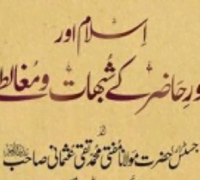 اسلام اور
ورِحَاضر کے شُبهات و مُغالط
از
جسٹس (ر) حضرت مولانا مفتی محمد تقی عثمانی صاحب